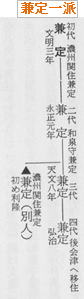 兼定一派
初代 濃州関住兼定
兼定
文明三年
二代 和泉守兼定
兼定
永正元年
三代
兼定
天文八年
四代 後会津へ移住
兼定
弘治
▲濃州関住兼定
兼定(別人)
初め利隆